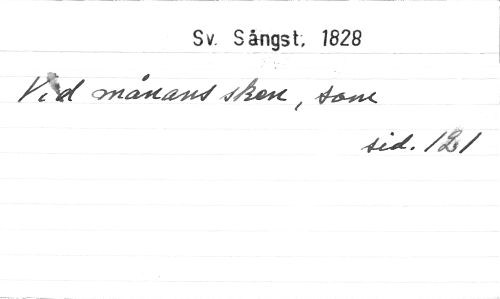 Sv. Sångst, 1828
Vid månans sken, som
sid. 121